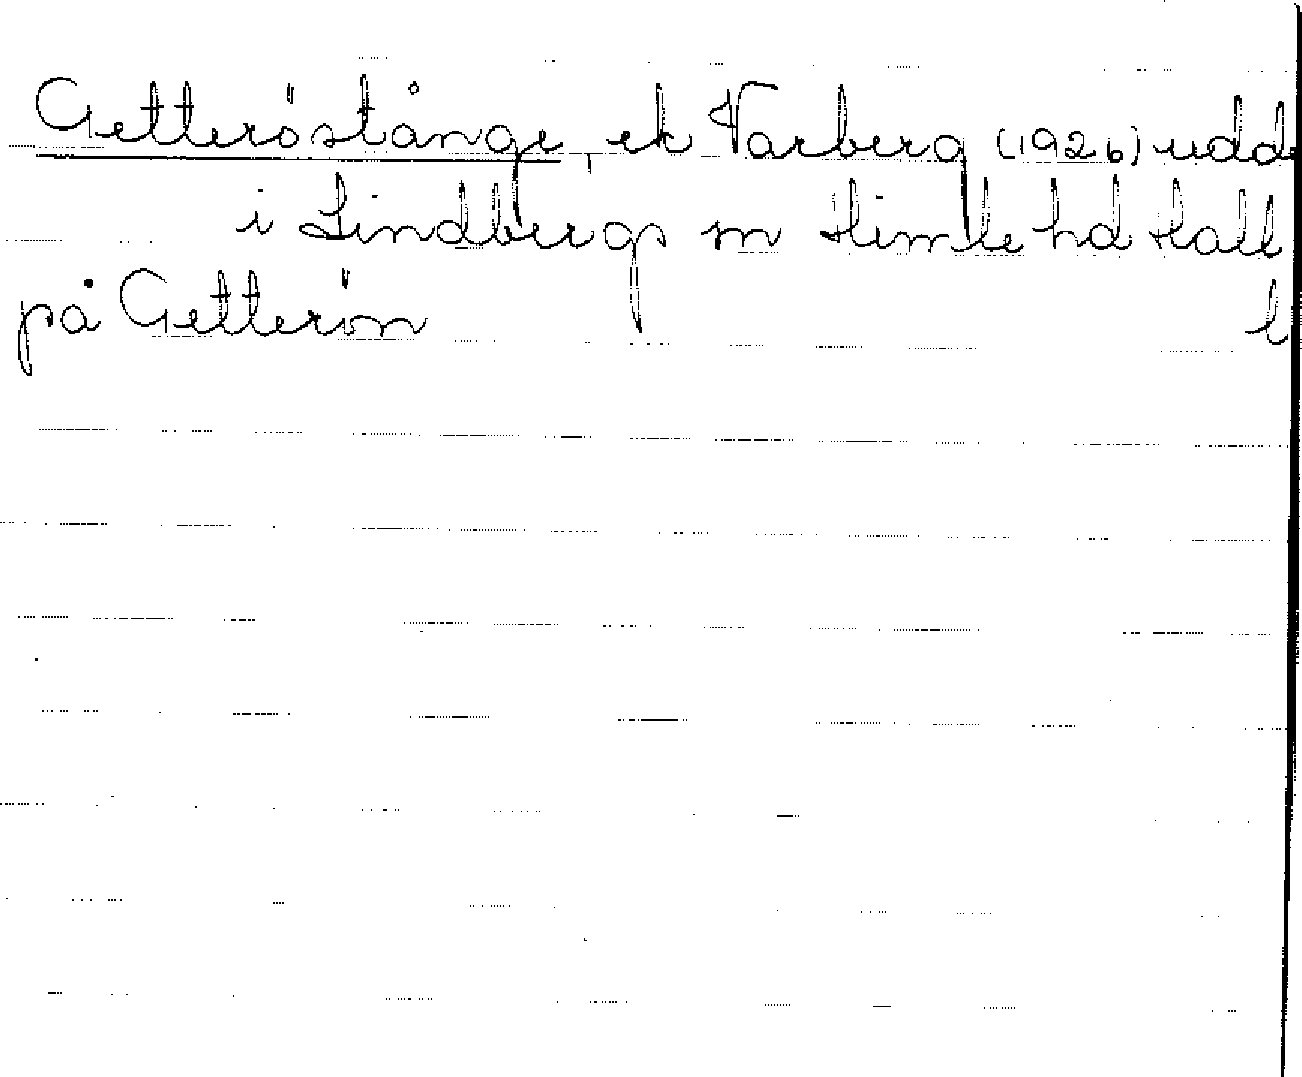 Getteröstånge, ek Varberg (1926) udde
i Lindbergs sn Himle hd Hall
på Getterön l